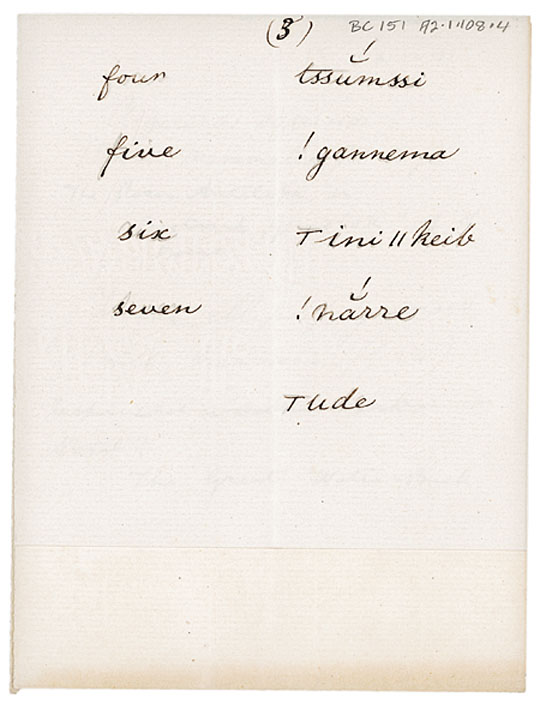 (3) BC 151 A2.1.108.4
four tssŭ́mssi
five !gannema
six Tini||keib
seven !nắrre
Tude